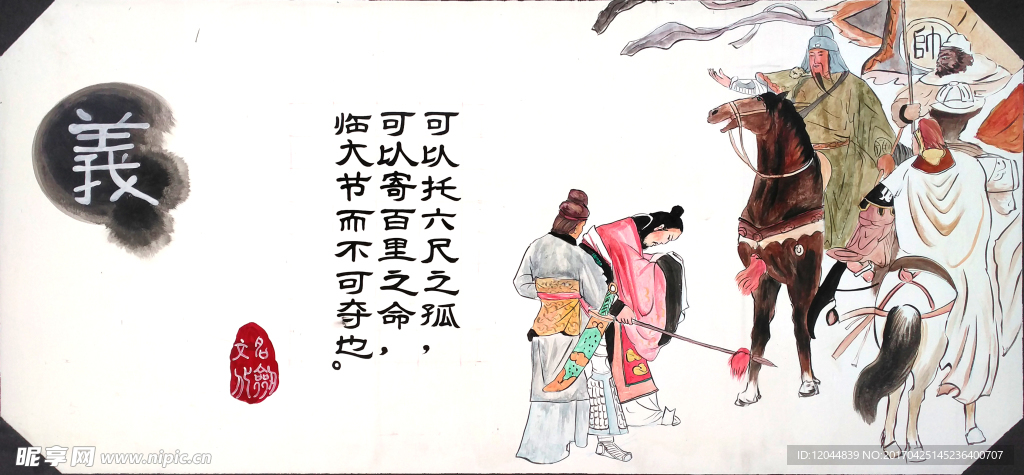 義
可以托六尺之孤，
可以寄百里之命，
临大节而不可夺也。
帥
昵享网 www.nipic.cn
ID:12044839 NO:20170425145236400707